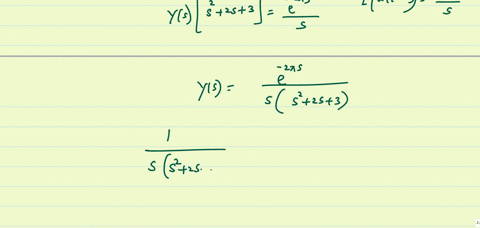 Y(s) [s²+2s+3] = e / s
Y(s) = e^{-2πs} / s(s²+2s+3)
1 / s(s²+2s..